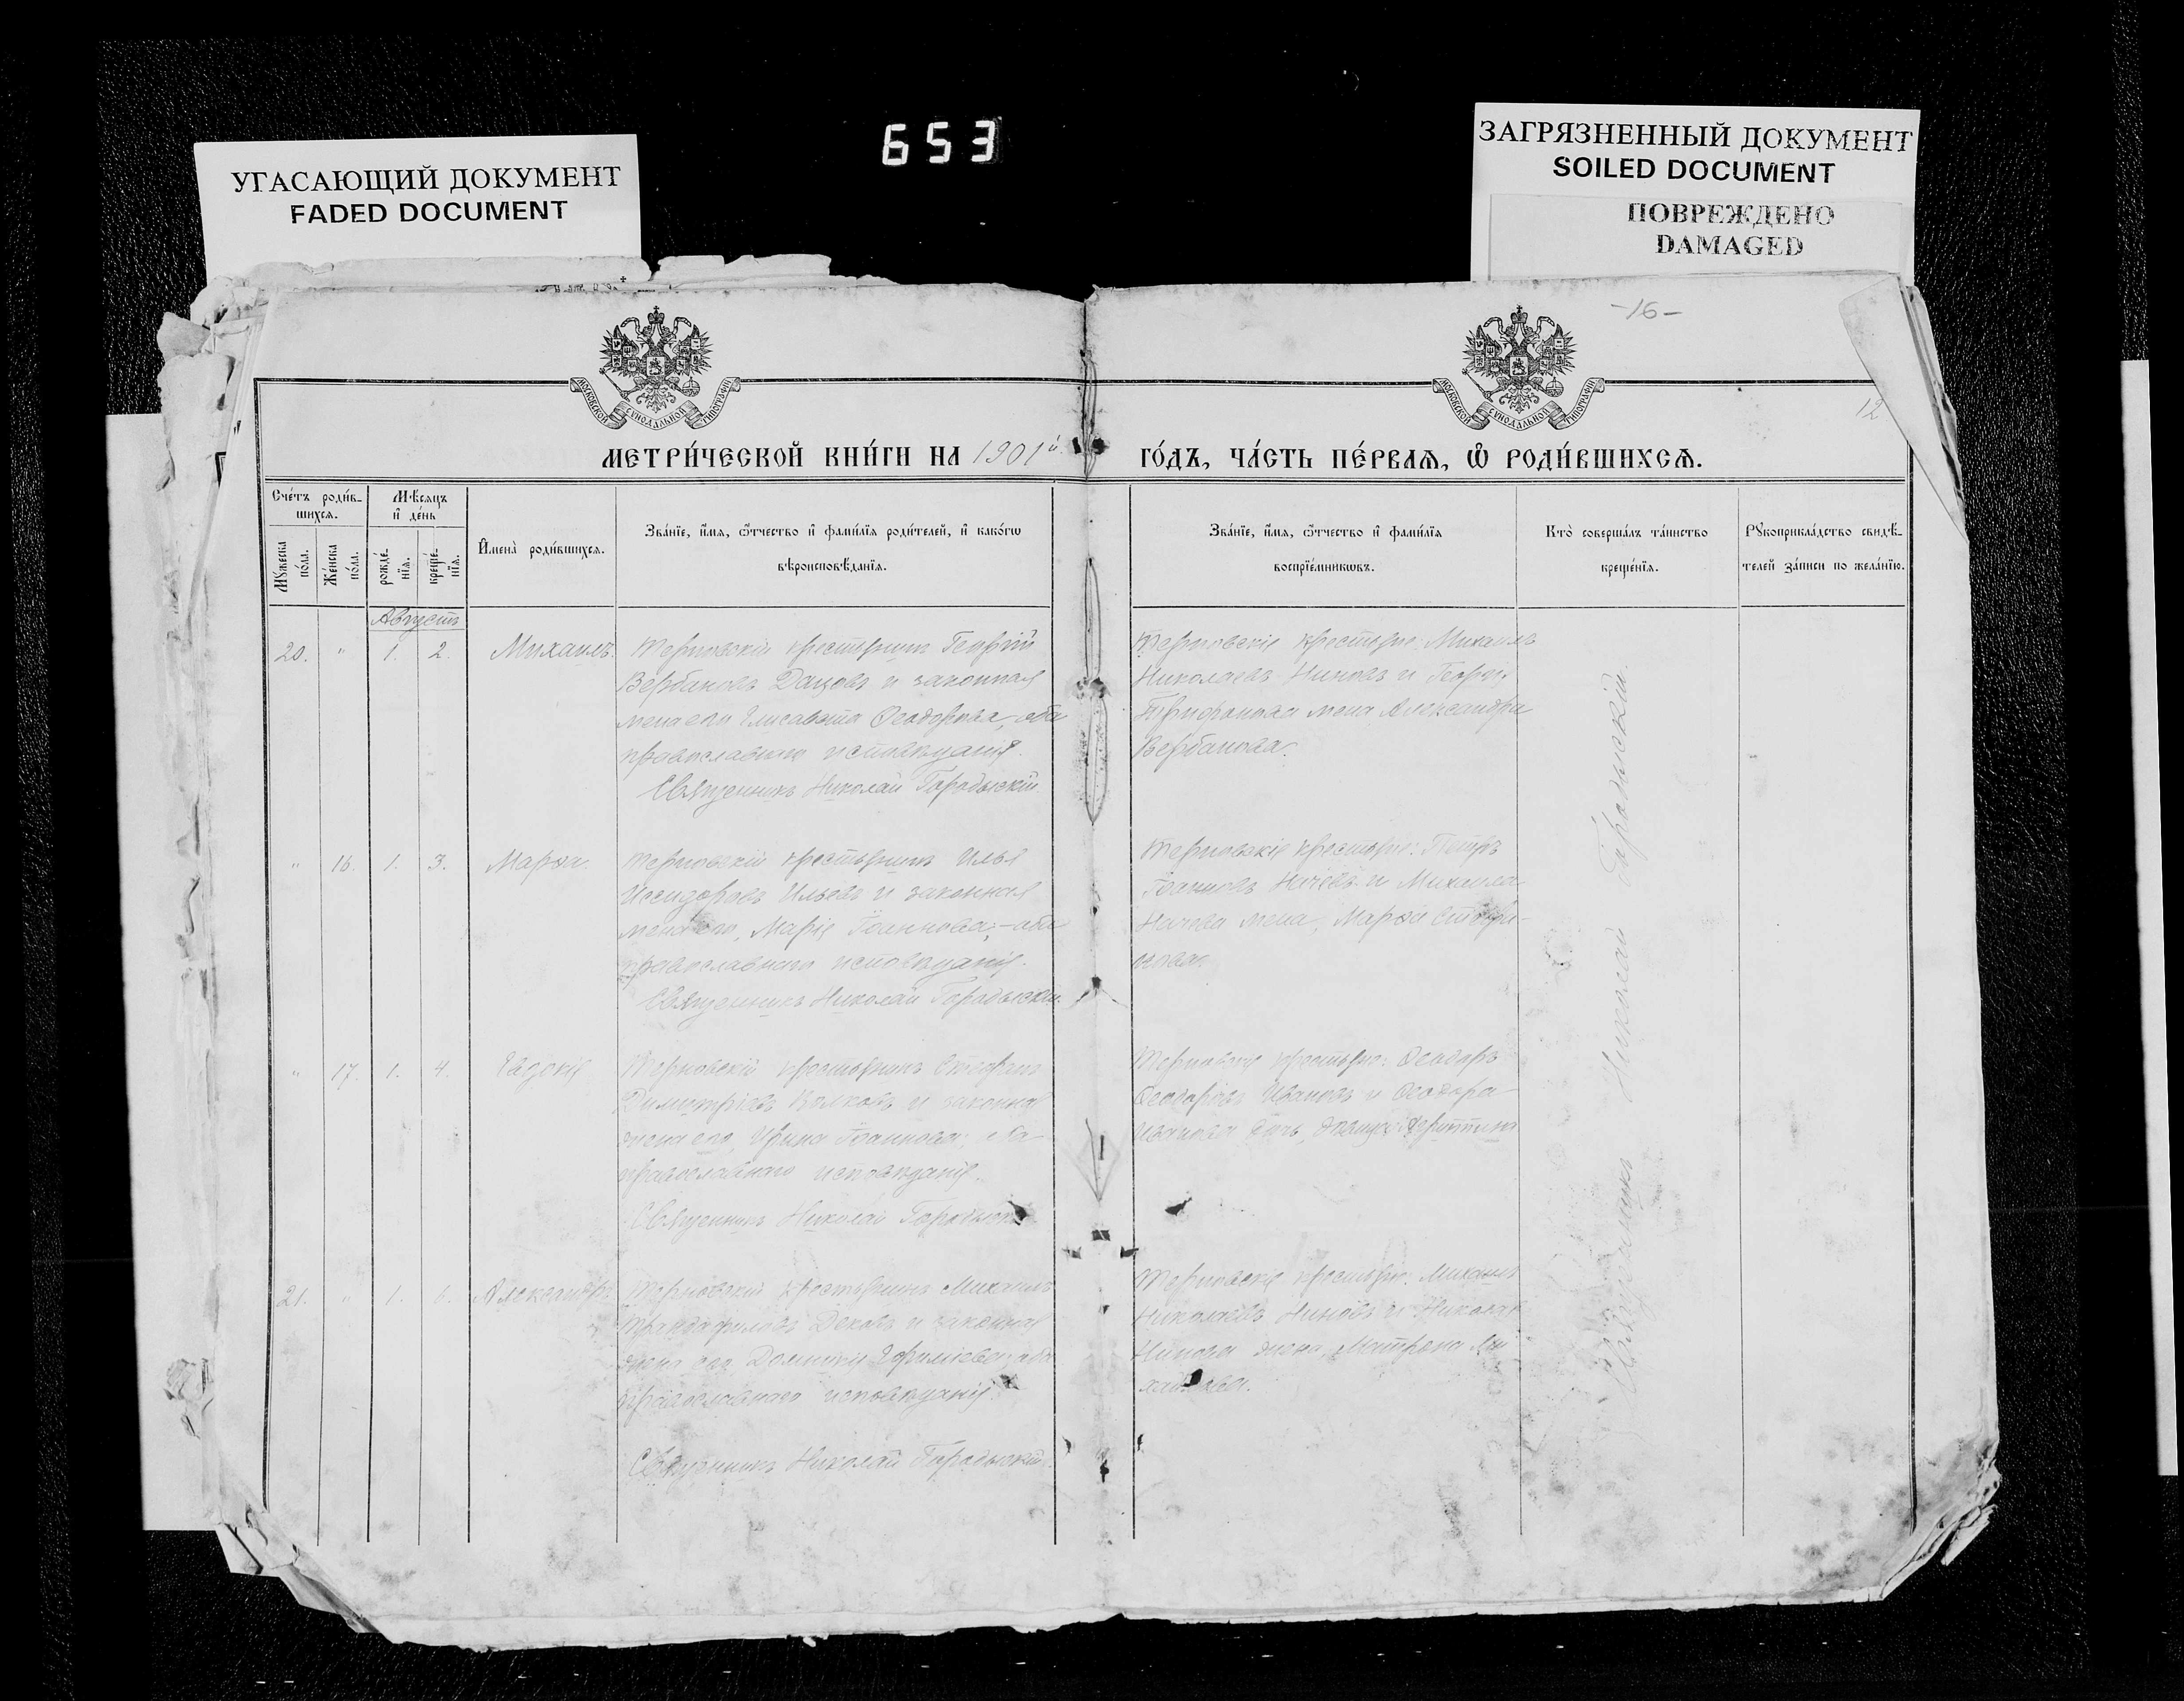 653
УГАСАЮЩИЙ ДОКУМЕНТ
FADED DOCUMENT
ЗАГРЯЗНЕННЫЙ ДОКУМЕНТ
SOILED DOCUMENT
ПОВРЕЖДЕНО
DAMAGED
-16-
МОСКОВСКОЙ СѴНОДАЛЬНОЙ ТИПОГРАФІИ
МОСКОВСКОЙ СѴНОДАЛЬНОЙ ТИПОГРАФІИ
12
МЕТРИ́ЧЕСКОЙ КНИ́ГИ НА 1901й ГО́ДЪ, ЧА́СТЬ ПЕ́РВАѦ, Ѽ РОДИ́ВШИХСѦ.
Сче́тъ роди́в-
шихсѧ.
Мѹжеска по́ла.
Же́нска по́ла.
Мѣ́сѧцъ
и҆ де́нь
рожде́-
нїѧ.
креще́-
нїѧ.
И҆мена̀ роди́вшихсѧ.
Зва́нїе, и҆́мѧ, ѻ҆́тчество и҆ фами́лїѧ роди́телей, и҆ како́гѡ
вѣроисповѣ́данїѧ.
Зва́нїе, и҆́мѧ, ѻ҆́тчество и҆ фами́лїѧ
воспрїе́мникѡвъ.
Кто̀ соверша́лъ та́инство
креще́нїѧ.
Рѹкоприкла́дство свидѣ́-
телей за́писи по жела́нїю.
Августъ
20. " 1. 2. Михаилъ.
Терновскій крестьянинъ Георгій
Вербановъ Дацовъ и законная
жена его Елисавета Ѳеодорова, оба
православнаго исповѣданія.
Священникъ Николай Городыскій
Терновскіе крестьяне: Михаилъ
Николаевъ Ниновъ и Георгія
жена Александра
Вербанова.
" 16. 1. 3. Марѳа.
Терновскій крестьянинъ Илья
Исидоровъ Ильевъ и законная
жена его, Марія Іоаннова, - оба
православнаго исповѣданія.
Священникъ Николай Городыскій.
Терновскіе крестьяне: Петръ
Іоанновъ Начевъ и Михаила
Начева жена, Марѳа
" 17. 1. 4. Евдокія
Терновскій крестьянинъ Стефанъ
Димитріевъ и законная
жена его, Ирина Іоаннова, оба
православнаго исповѣданія.
Священникъ Николай Городыскій
Терновскіе крестьяне: Ѳеодоръ
Ѳеодоровъ Ивановъ и Ѳеодора
Иванова дочь,
21. " 1. 6. Александръ.
Терновскій крестьянинъ Михаилъ
Трандафиловъ Дековъ и законная
жена его, Домникія Ефиміева, оба
православнаго исповѣданія.
Священникъ Николай Городыскій.
Терновскіе крестьяне: Михаилъ
Николаевъ Ниновъ и Николая
Нинова жена, Матрона Ми-
хайлова.
Священникъ Николай Городыскій.